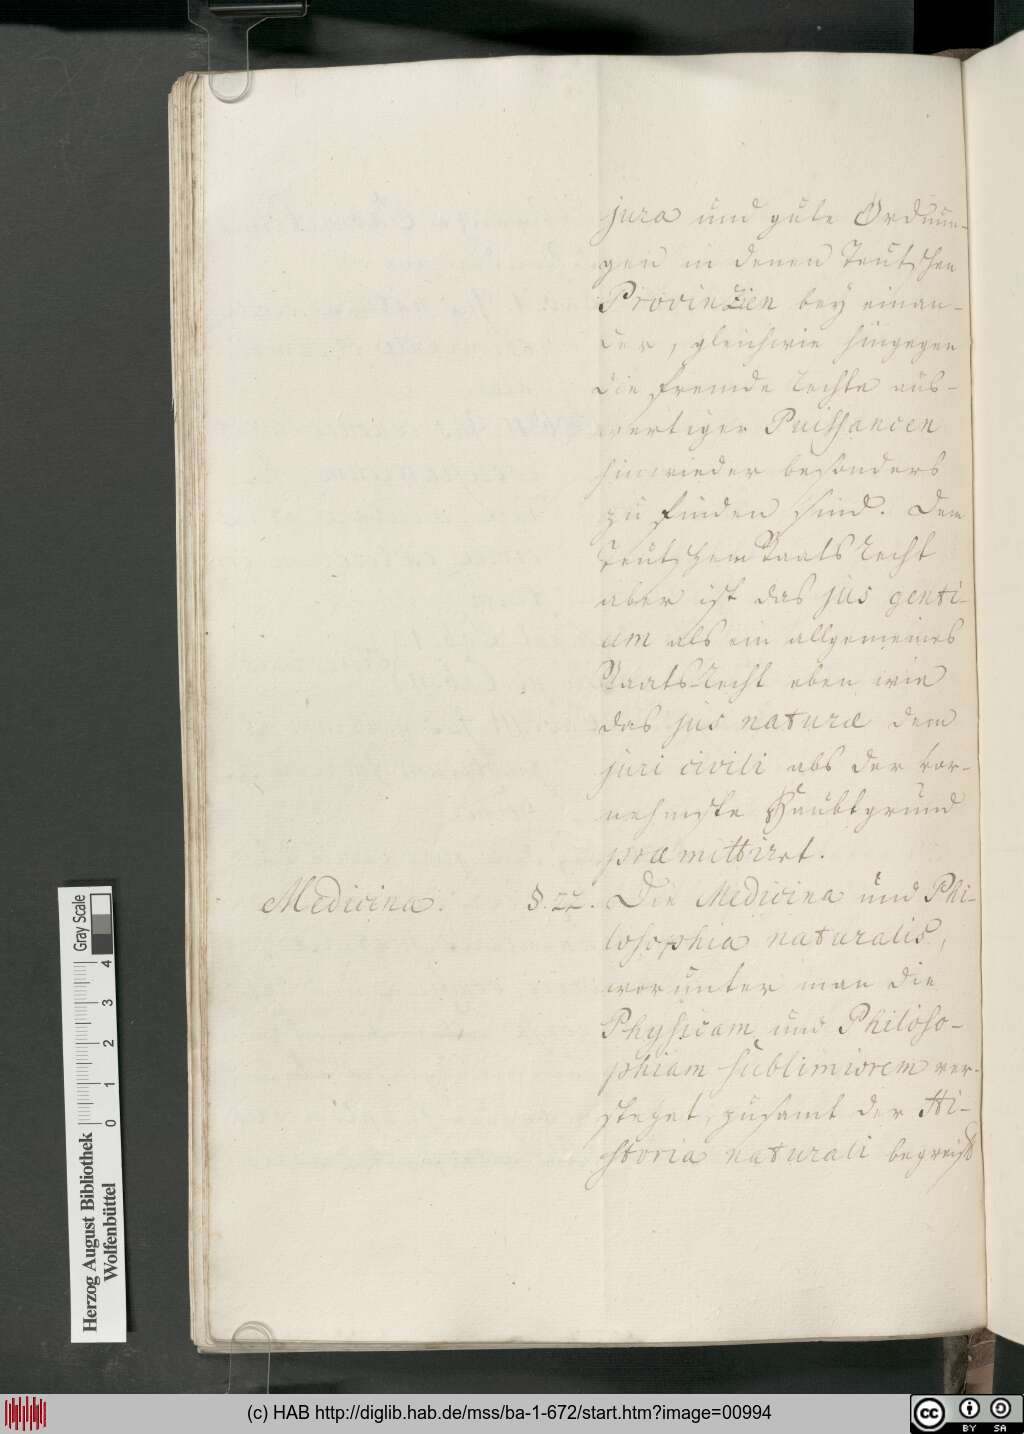 jura und gute Ordnun-
gen in denen Teutschen
Provinzien bey einan-
der, gleichwie hingegen
die fremde Rechte aus-
wertiger Puissancen
hinwieder besonders
zu finden sind. Dem
Teutschem Staats Recht
aber ist das jus genti-
um als ein allgemeines
Staats-Recht eben wie
das jus naturæ dem
juri civili als der vor-
nehmste Haubtgrund
præmittiret.
Medicina. §. 22. Die Medicina und Phi-
losophia naturalis,
worunter man die
Physicam und Philoso-
phiam sublimiorem ver-
stehet, zusamt der Hi-
storia naturali begreift
Gray Scale
0 1 2 3 4
Herzog August Bibliothek
Wolfenbüttel
(c) HAB http://diglib.hab.de/mss/ba-1-672/start.htm?image=00994
cc BY SA